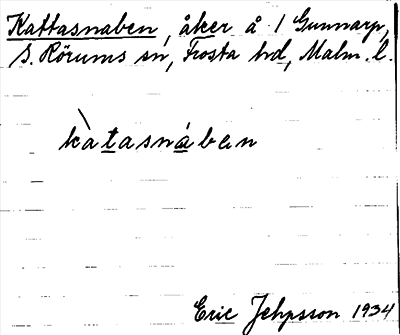 Kattasnaben, åker å 1 Gunnarp,
S. Rörums sn, Frosta hd, Malm. l.
kàtasnáben
Eric Jehpsson 1934